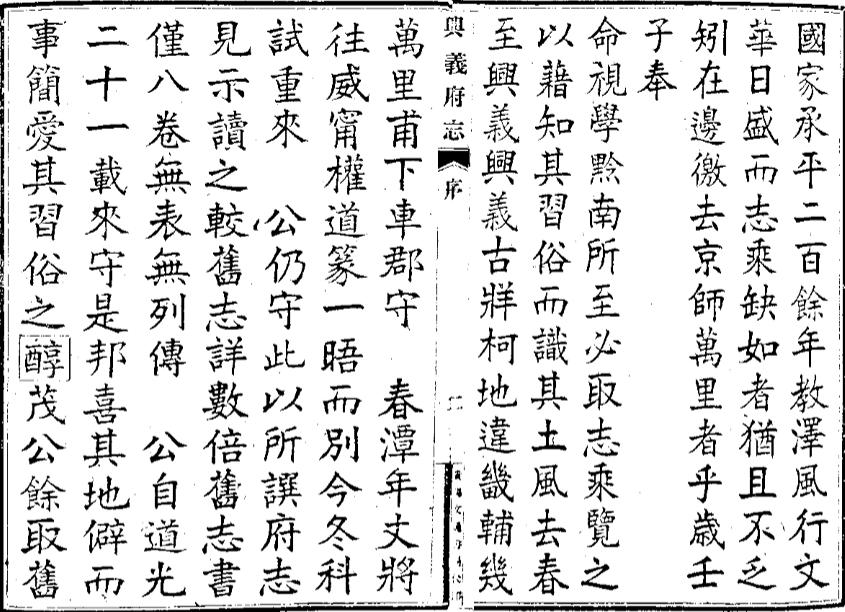 國家承平二百餘年教澤風行文
華日盛而志乘缺如者猶且不乏
矧在邊徼去京師萬里者乎歲壬
子奉
命視學黔南所至必取志乘覽之
以藉知其習俗而識其土風去春
至興義興義古牂柯地違畿輔幾
興義府志
序
萬里甫下車郡守 春潭年丈將
往威甯權道篆一晤而別今冬科
試重來 公仍守此以所譔府志
見示讀之較舊志詳數倍舊志書
僅八卷無表無列傳 公自道光
二十一載來守是邦喜其地僻而
事簡愛其習俗之醇茂公餘取舊